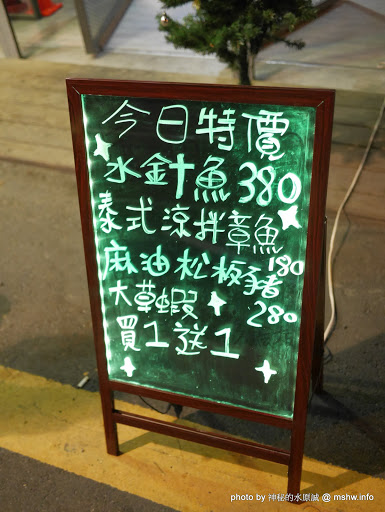 今日特價
水針魚380
泰式涼拌章魚
180
麻油松板豬
280
大草蝦
買1送1
photo by 神秘的水原誠 @ mshw.info